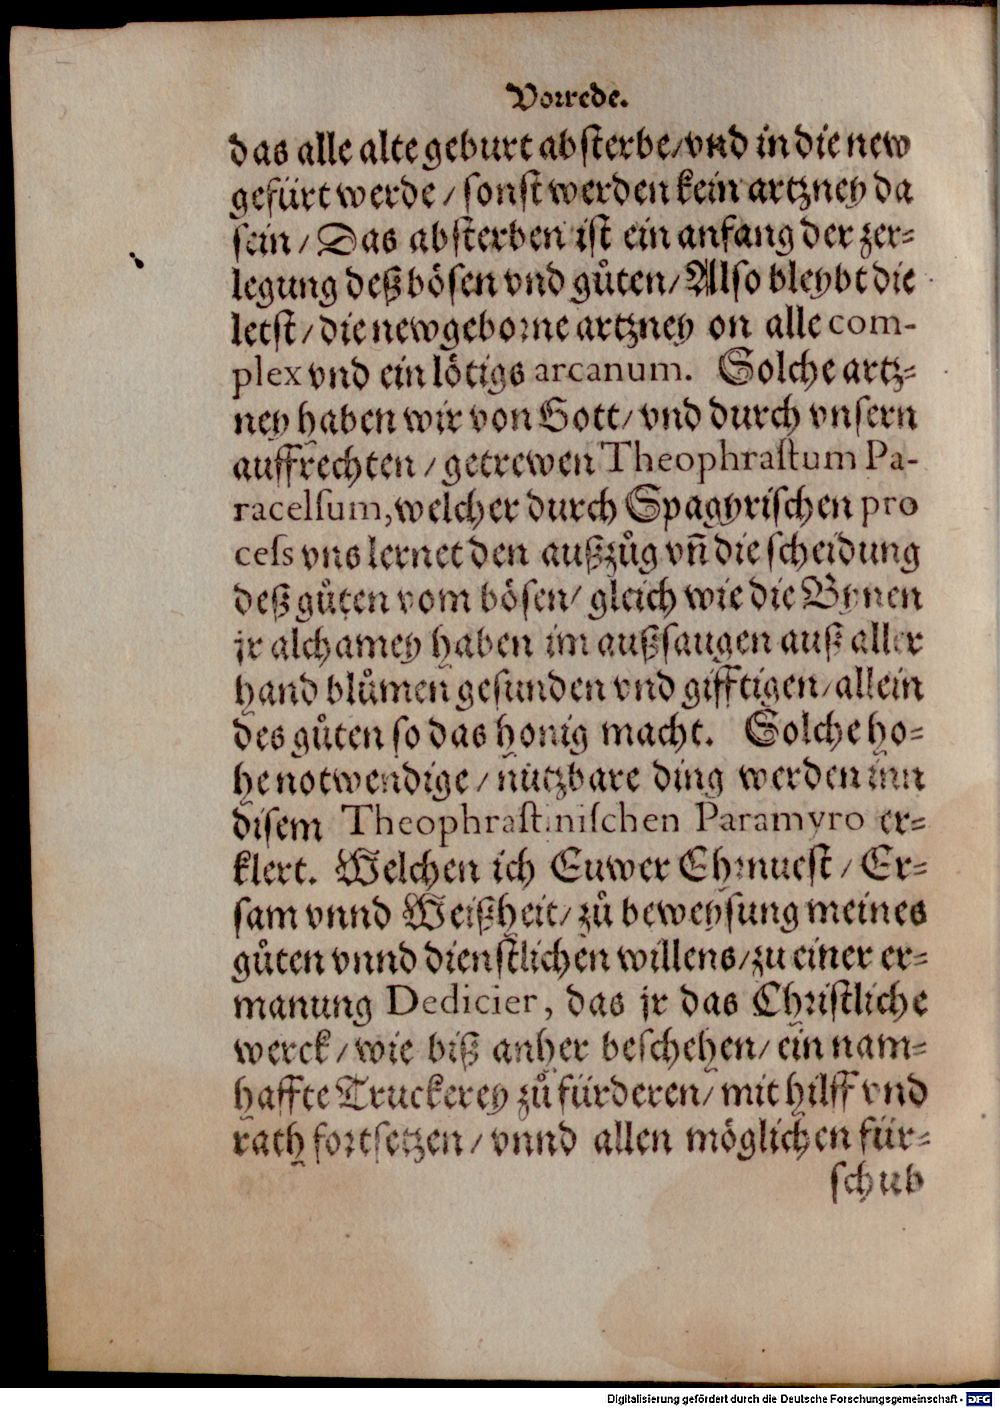 Vorrede.
das alle alte geburt absterbe/vnd in die new
gefürt werde / sonst werden kein artzney da
sein / Das absterben ist ein anfang der zer-
legung deß bösen vnd gůten/ Also bleybt die
letst / die newgeborne artzney on alle com-
plex vnd ein lötigs arcanum. Solche artz-
ney haben wir von Gott/ vnd durch vnsern
auffrechten / getrewen Theophraſtum Pa-
racelſum, welcher durch Spagyrischen pro
ceſs vns lernet den außzůg vñ die scheidung
deß gůten vom bösen/ gleich wie die Bynen
jr alchamey haben im außsaugen auß aller
hand blůmen gesunden vnd gifftigen/allein
des gůten so das honig macht. Solche ho-
he notwendige / nutzbare ding werden inn
disem Theophraſtiniſchen Paramyro er-
klert. Welchen ich Euwer Ehrnuest / Er-
sam vnnd Weißheit/ zů beweysung meines
gůten vnnd dienstlichen willens/zu einer er-
manung Dedicier, das jr das Christliche
werck / wie biß anher beschehen/ ein nam-
haffte Truckerey zů fürderen/ mit hilff vnd
rath fortsetzen / vnnd allen möglichen für-
schub
Digitalisierung gefördert durch die Deutsche Forschungsgemeinschaft - DFG